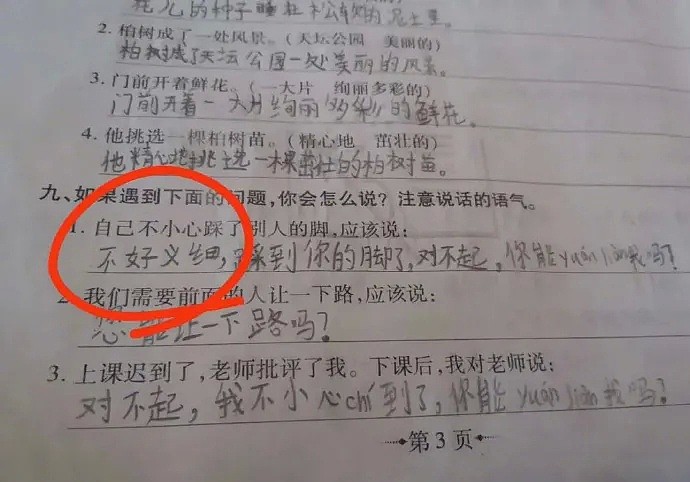 花儿的种子睡在松软的泥土里。
2. 柏树成了一处风景。(天坛公园 美丽的)
柏树成了天坛公园一处美丽的风景。
3. 门前开着鲜花。(一大片 绚丽多彩的)
门前开着一大片绚丽多彩的鲜花。
4. 他挑选一棵柏树苗。(精心地 茁壮的)
他精心地挑选一棵茁壮的柏树苗。
九、如果遇到下面的问题,你会怎么说?注意说话的语气。
1. 自己不小心踩了别人的脚,应该说:
不好义细,踩到你的脚了,对不起,你能yuán liàng我吗?
2. 我们需要前面的人让一下路,应该说:
您能让一下路吗?
3. 上课迟到了,老师批评了我。下课后,我对老师说:
对不起,我不小心chí到了,你能yuán liàng我吗?
第3页